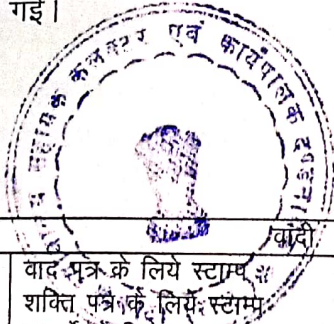 गई।
सहायक कलक्टर एवं कार्यपालक दण्डना
वादी
वाद पत्र के लिये स्टाम्प
शक्ति पत्र के लिये स्टाम्प